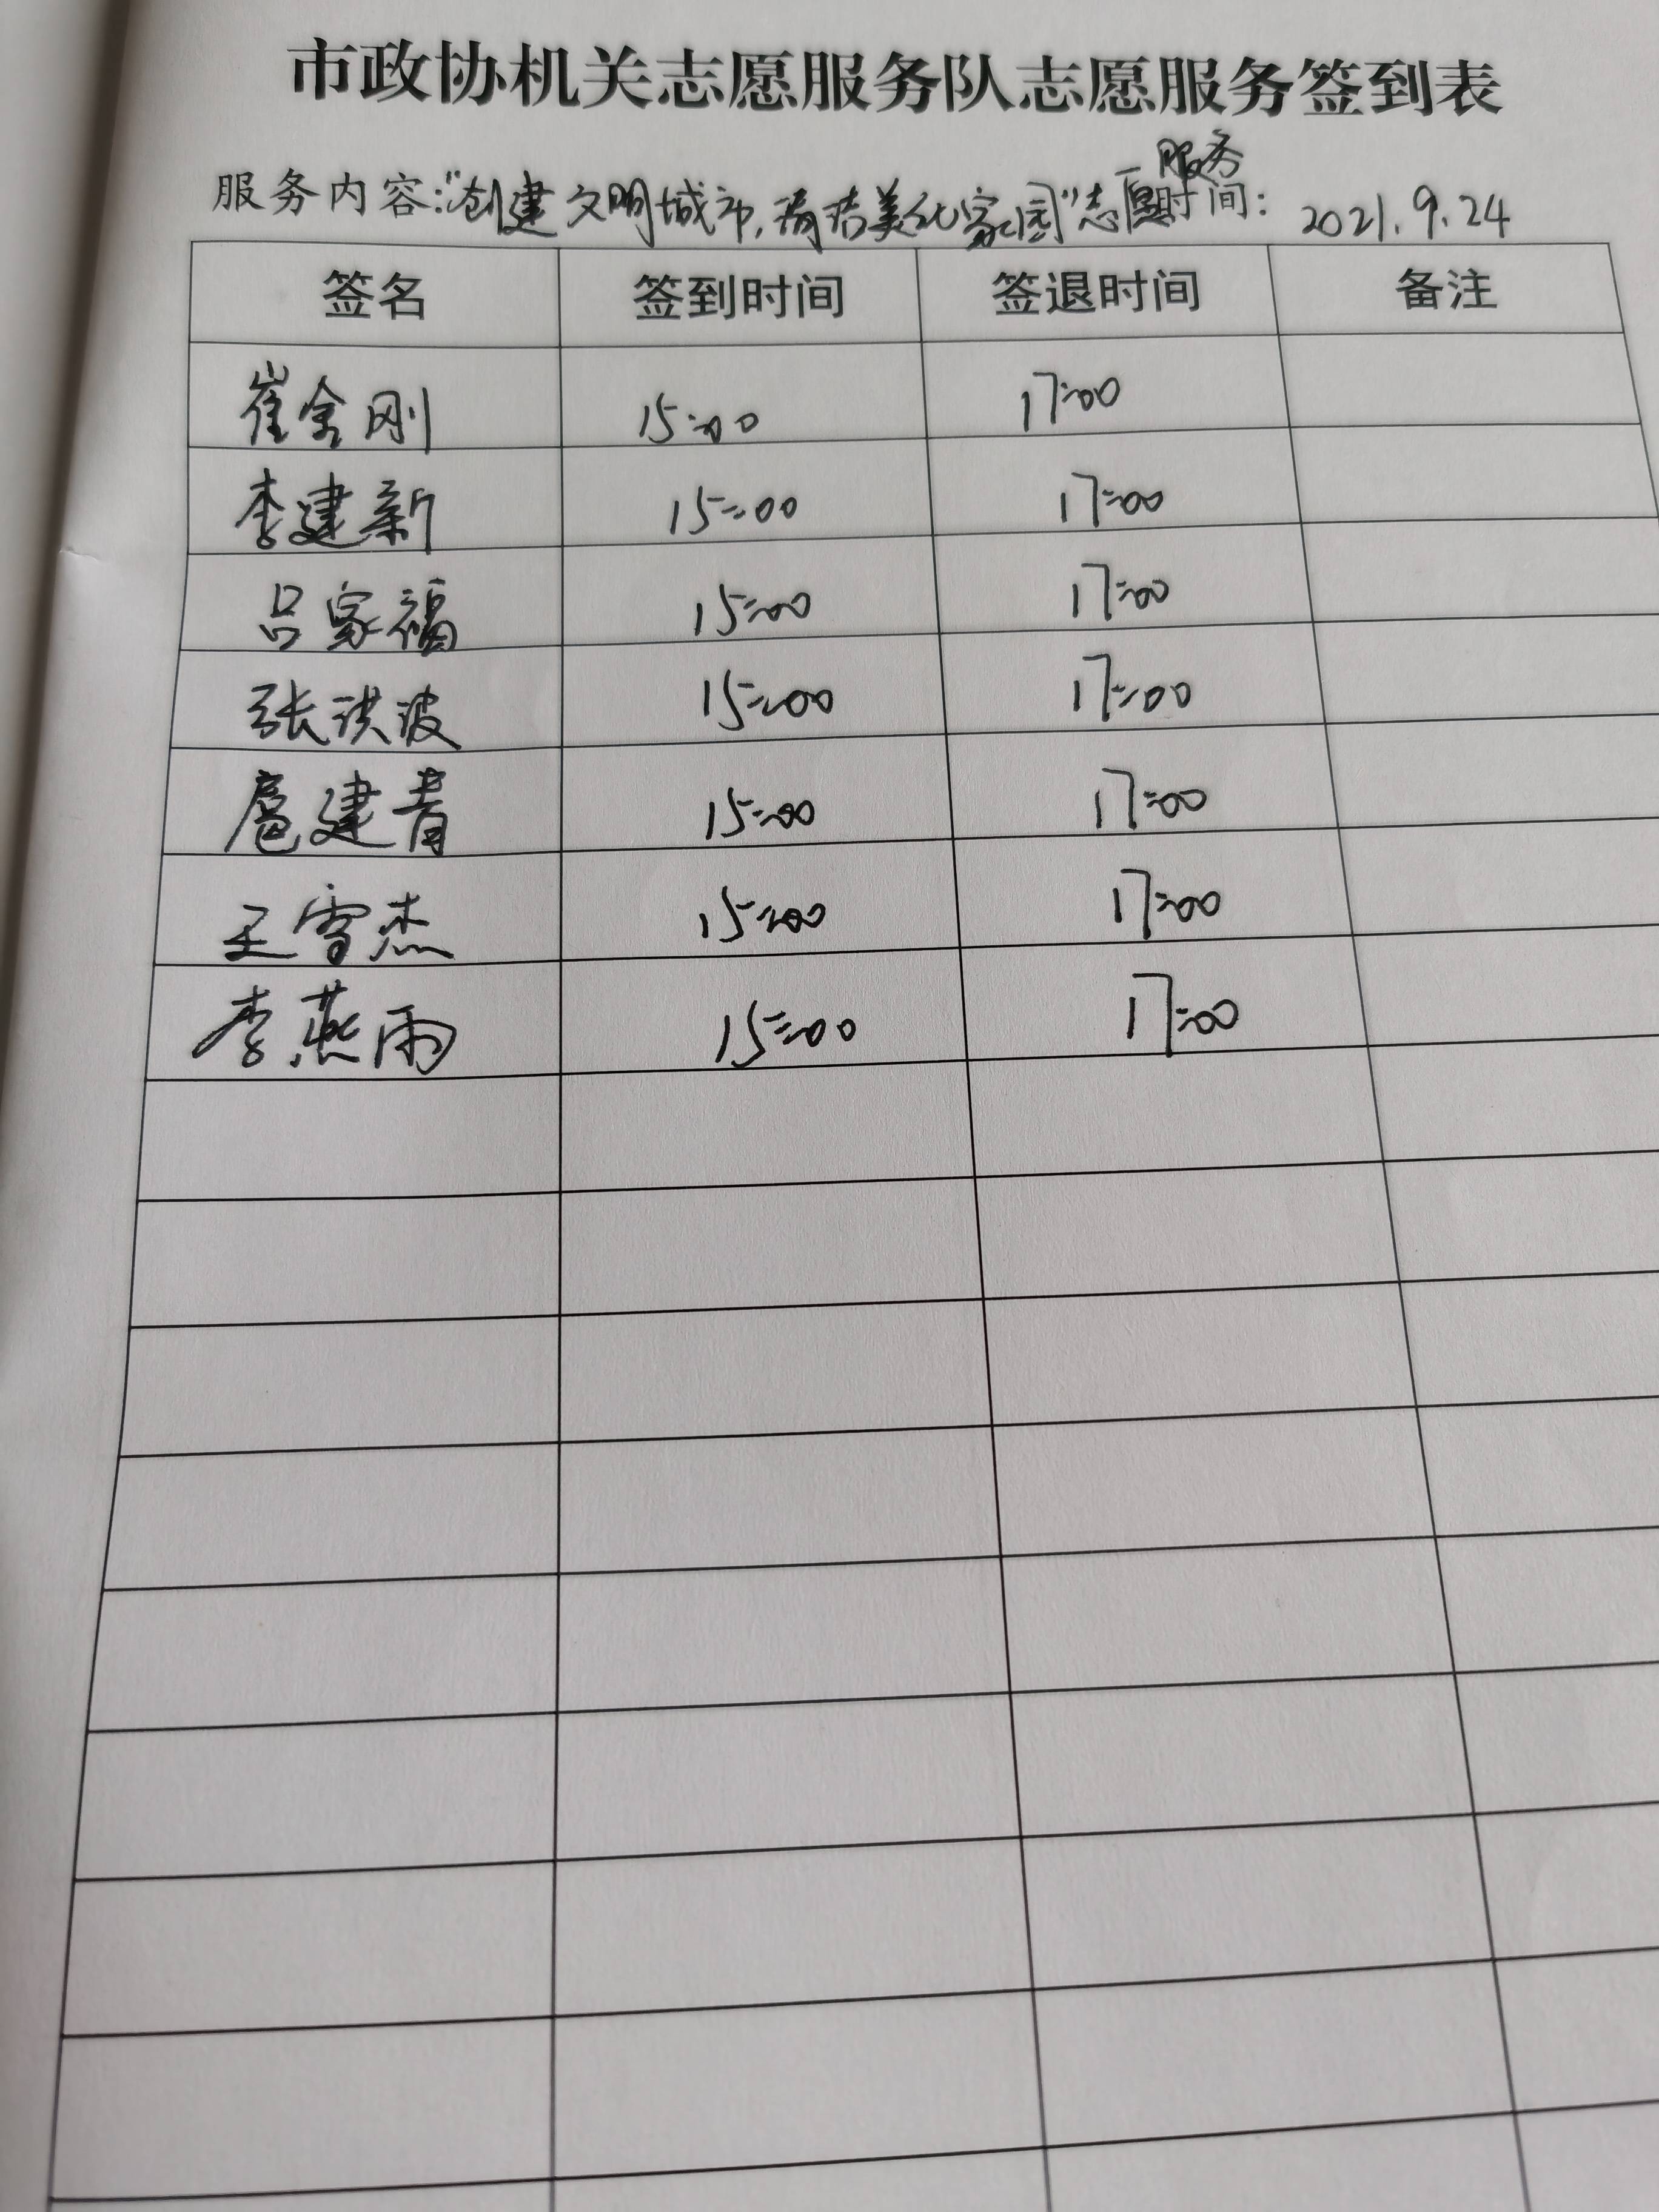 市政协机关志愿服务队志愿服务签到表
服务内容:“创建文明城市,清洁美化家园”志愿服务 时间: 2021.9.24
签名 签到时间 签退时间 备注
崔金刚 15:00 17:00
李建新 15:00 17:00
吕家福 15:00 17:00
张洪波 15:00 17:00
扈建青 15:00 17:00
王雪杰 15:00 17:00
李燕雨 15:00 17:00